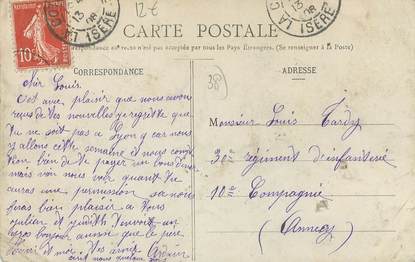 12€
CARTE POSTALE
Correspondance au recto n'est pas acceptée par tous les Pays Etrangers. (Se renseigner à la Poste)
CORRESPONDANCE
ADRESSE
38
10
ISÈRE
ISÈRE
Louis
C'est avec plaisir que nous avons
reçus de tes nouvelles je regrette que
tu ne soit pas a Lyon car nous
y allons cette semaine et nous
bien de te payer un
mais nous voir quant tu
auras une permission sa nous
feras bien plaisir a tous
et Judith t'envoit un
gros bonjour aussi que le père
et moi tes amis
Monsieur Louis Tardy
30e régiment d'infanterie
10e Compagnie
(Annecy)